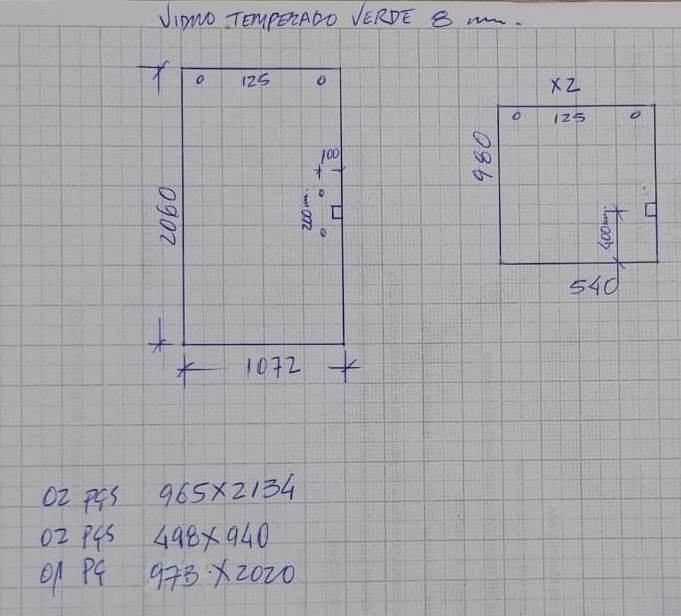 VIDRO TEMPERADO VERDE 8 mm.
125
100
200m.
2060
1072
X2
125
980
400m.
540
02 PÇS 965X2134
02 PÇS 498X940
01 PÇ 973X2020